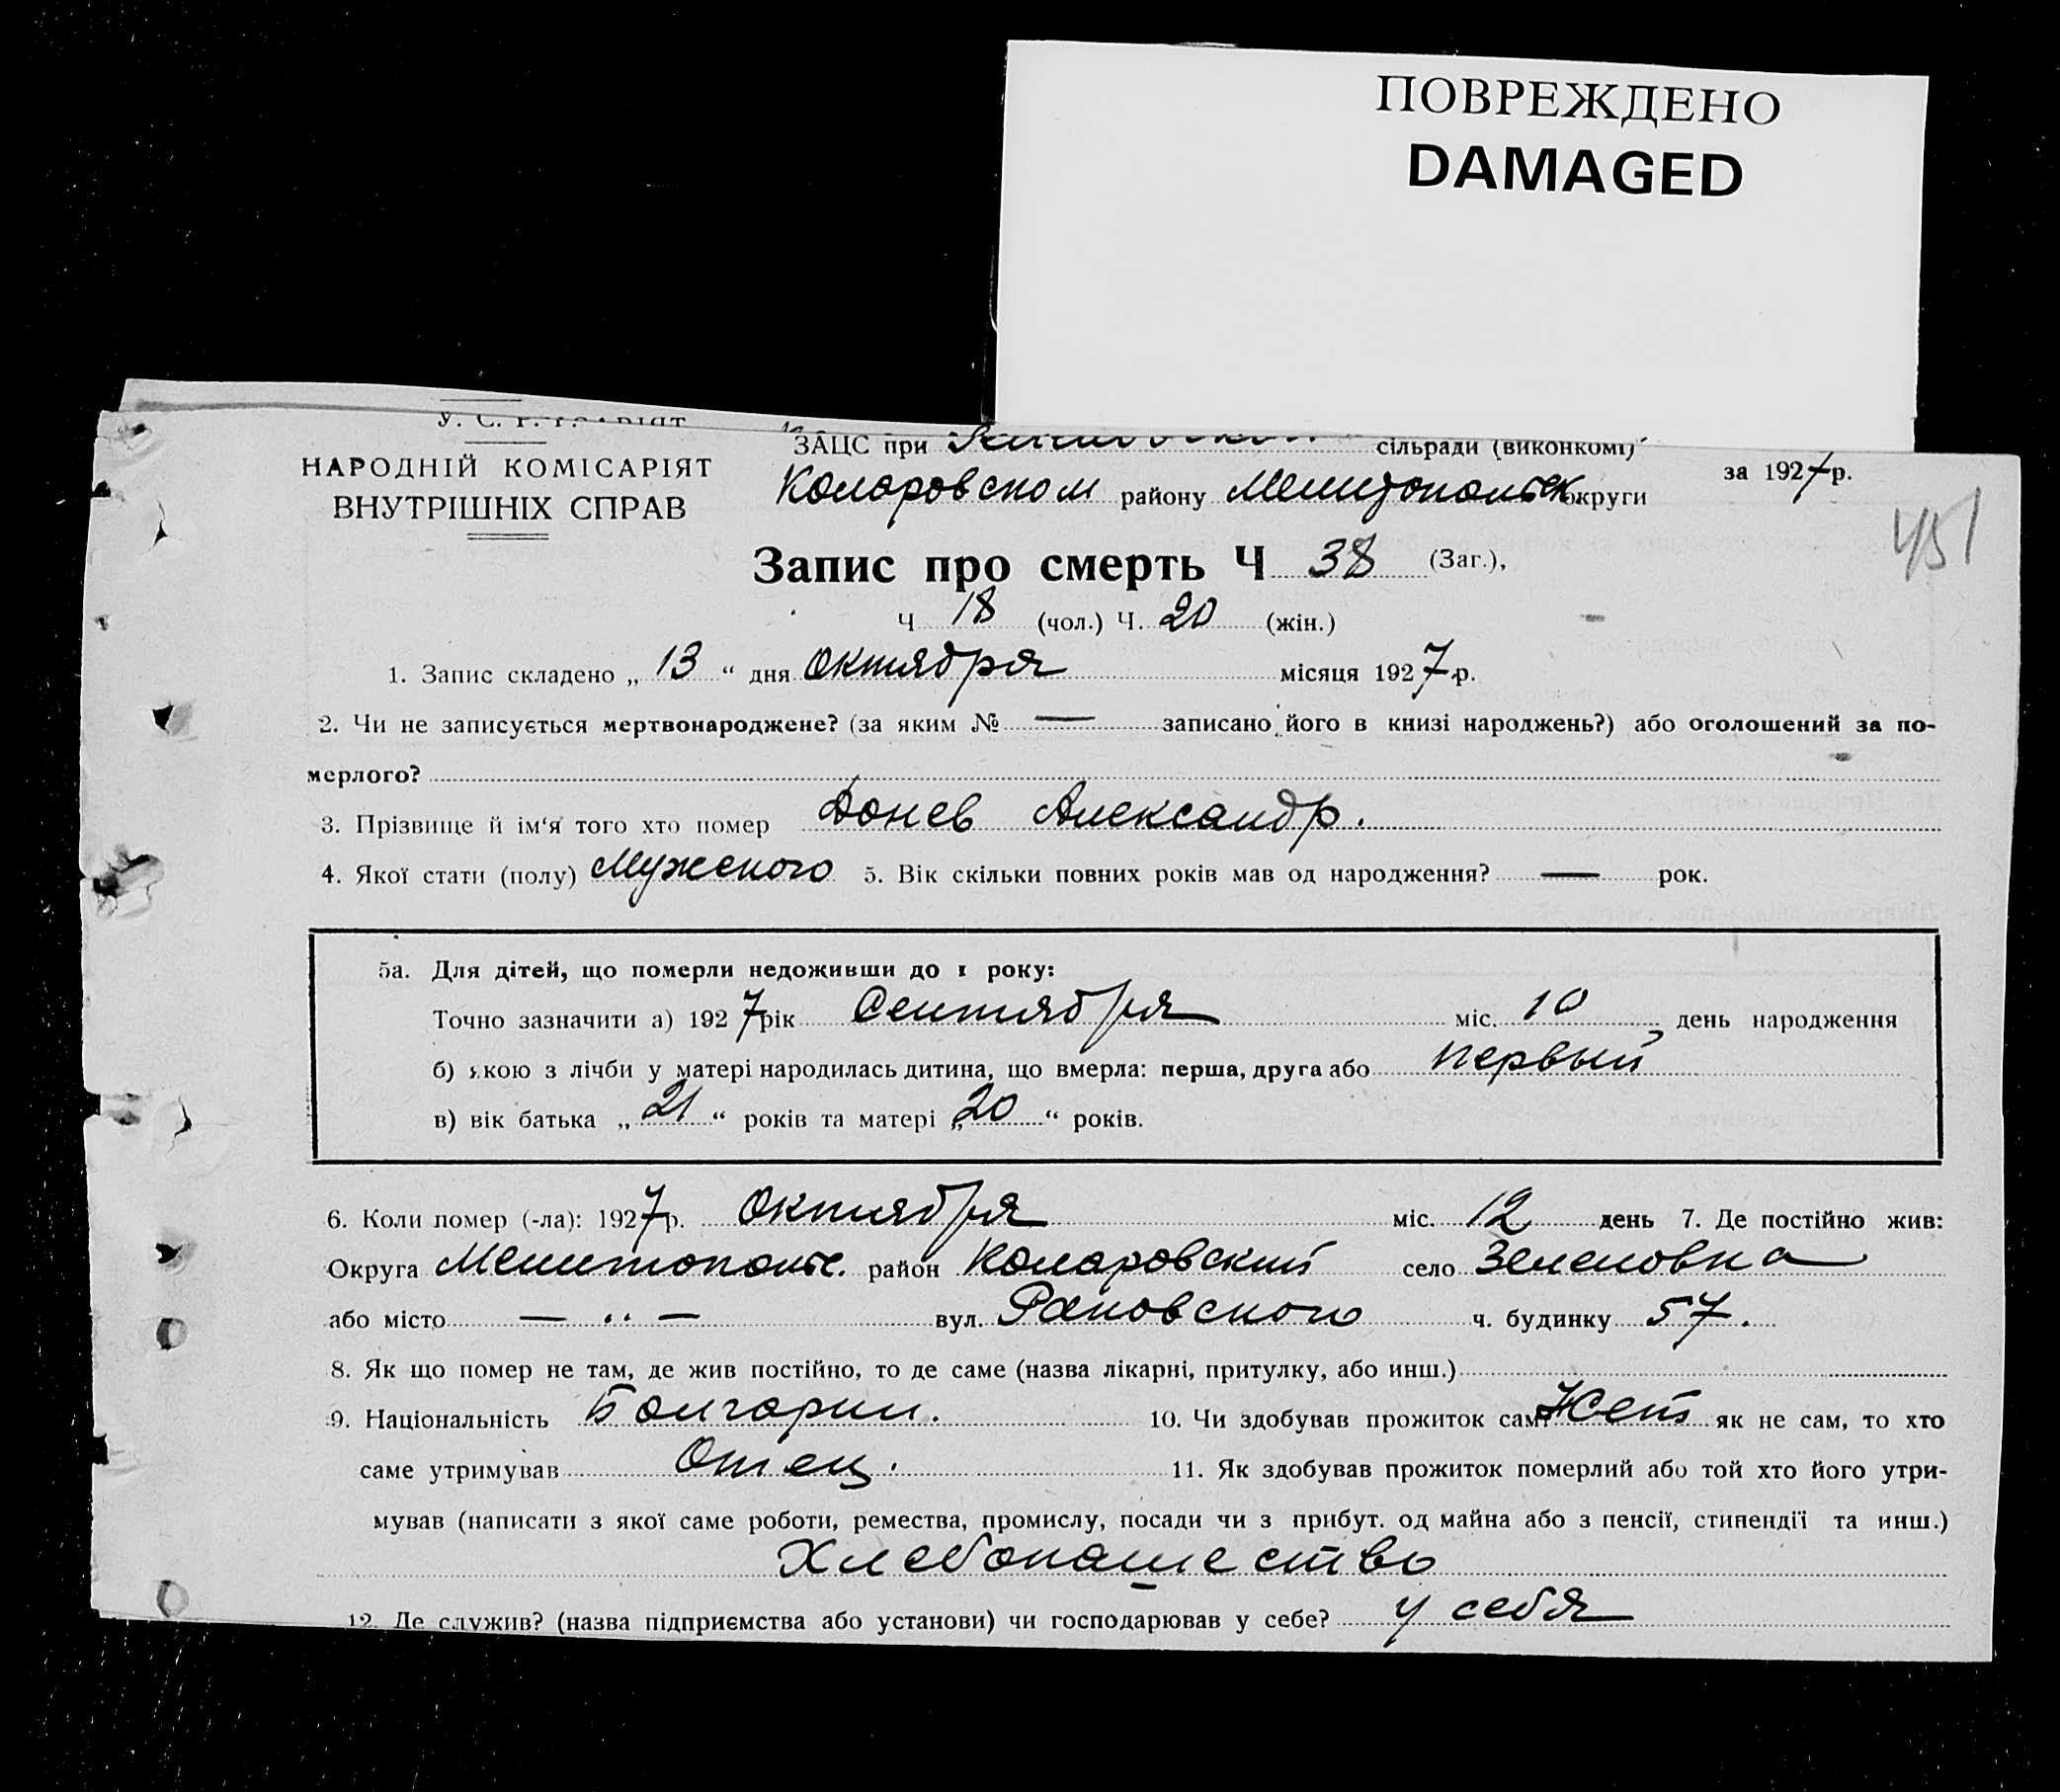 ПОВРЕЖДЕНО
DAMAGED
НАРОДНІЙ КОМІСАРІЯТ
ВНУТРІШНІХ СПРАВ
ЗАЦС при сільради (виконкомі)
Коларовском району Мелитопольск округи
за 1927 р.
451
Запис про смерть Ч 38 (Заг.),
Ч 18 (чол.) Ч. 20 (жін.)
1. Запис складено „ 13 “ дня Октября місяця 1927 р.
2. Чи не записується мертвонароджене? (за яким № — записано його в книзі народжень?) або оголошений за по-
мерлого?
3. Прізвище й ім‘я того хто помер Донев Александр.
4. Якої стати (полу) Мужского 5. Вік скільки повних років мав од народження? — рок.
5а. Для дітей, що померли недоживши до 1 року:
Точно зазначити а) 1927 рік Сентября міс. 10 день народження
б) якою з лічби у матері народилась дитина, що вмерла: перша, друга або первый
в) вік батька „ 21 “ років та матері „ 20 “ років.
6. Коли помер (-ла): 1927 р. Октября міс. 12 день 7. Де постійно жив:
Округа Мелитопольс. район Коларовский село Зеленовка
або місто — ·· — вул. Раковского ч. будинку 57.
8. Як що помер не там, де жив постійно, то де саме (назва лікарні, притулку, або инш.)
9. Національність Болгарин. 10. Чи здобував прожиток сам? Нет як не сам, то хто
саме утримував Отец. 11. Як здобував прожиток померлий або той хто його утри-
мував (написати з якої саме роботи, ремества, промислу, посади чи з прибут. од майна або з пенсії, стипендії та инш.)
Хлебопашество
12. Де служив? (назва підприємства або установи) чи господарював у себе? у себя